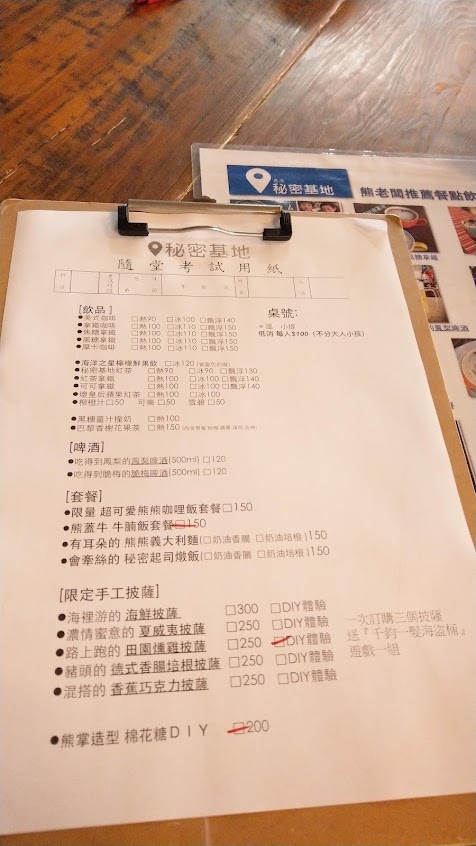 秘密基地
熊老闆推薦餐點飲
秘密基地
隨堂考試用紙
[飲品]
桌號:
●美式咖啡 □熱90 □冰100 □飄浮140
●拿鐵咖啡 □熱100 □冰110 □飄浮150
●焦糖拿鐵 □熱100 □冰110 □飄浮150
●黑糖拿鐵 □熱100 □冰110 □飄浮150
●摩卡咖啡 □熱100 □冰110 □飄浮150
低消 每人$100 (不分大人小孩)
●海洋之星檸檬鮮果飲 □冰120
●秘密基地紅茶 □熱90 □冰90 □飄浮130
●紅茶拿鐵 □熱100 □冰100 □飄浮140
●可可拿鐵 □熱100 □冰100 □飄浮140
●壞皇后蘋果紅茶 □熱100 □冰100
●柳橙汁□50 可樂□50 雪碧□50
●黑糖薑汁撞奶 □熱100
●巴黎香榭花果茶 □熱150
[啤酒]
●吃得到鳳梨的鳳梨啤酒(500ml) □120
●吃得到脆梅的脆梅啤酒(500ml) □120
[套餐]
●限量 超可愛熊熊咖哩飯套餐□150
●熊蓋牛 牛腩飯套餐□150
●有耳朵的 熊熊義大利麵(□奶油香腸 □奶油培根)150
●會牽絲的 秘密起司燉飯(□奶油香腸 □奶油培根)150
[限定手工披薩]
●海裡游的 海鮮披薩 □300 □DIY體驗
●濃情蜜意的 夏威夷披薩 □250 □DIY體驗
●路上跑的 田園燻雞披薩 □250 □DIY體驗
●豬頭的 德式香腸培根披薩 □250 □DIY體驗
●混搭的 香蕉巧克力披薩 □250 □DIY體驗
一次訂購三個披薩
送『千鈞一髮海盜桶』
遊戲一組
●熊掌造型 棉花糖DIY □200